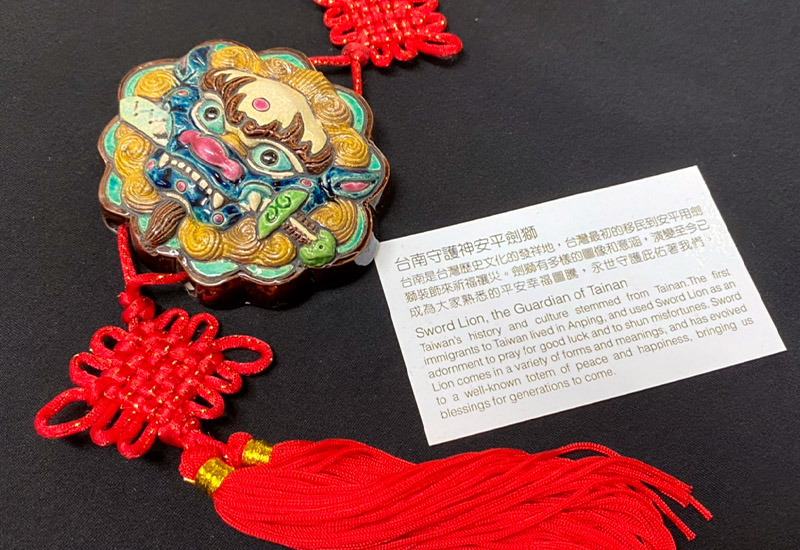 台南守護神安平劍獅
台南是台灣歷史文化的發祥地，台灣最初的移民到安平用劍
獅裝飾來祈福禳災。劍獅有多樣的圖像和意涵，演變至今已
成為大家熟悉的平安幸福圖騰，永世守護庇佑著我們。
Sword Lion, the Guardian of Tainan
Taiwan's history and culture stemmed from Tainan.The first
immigrants to Taiwan lived in Anping, and used Sword Lion as an
adornment to pray for good luck and to shun misfortunes. Sword
Lion comes in a variety of forms and meanings, and has evolved
to a well-known totem of peace and happiness, bringing us
blessings for generations to come.